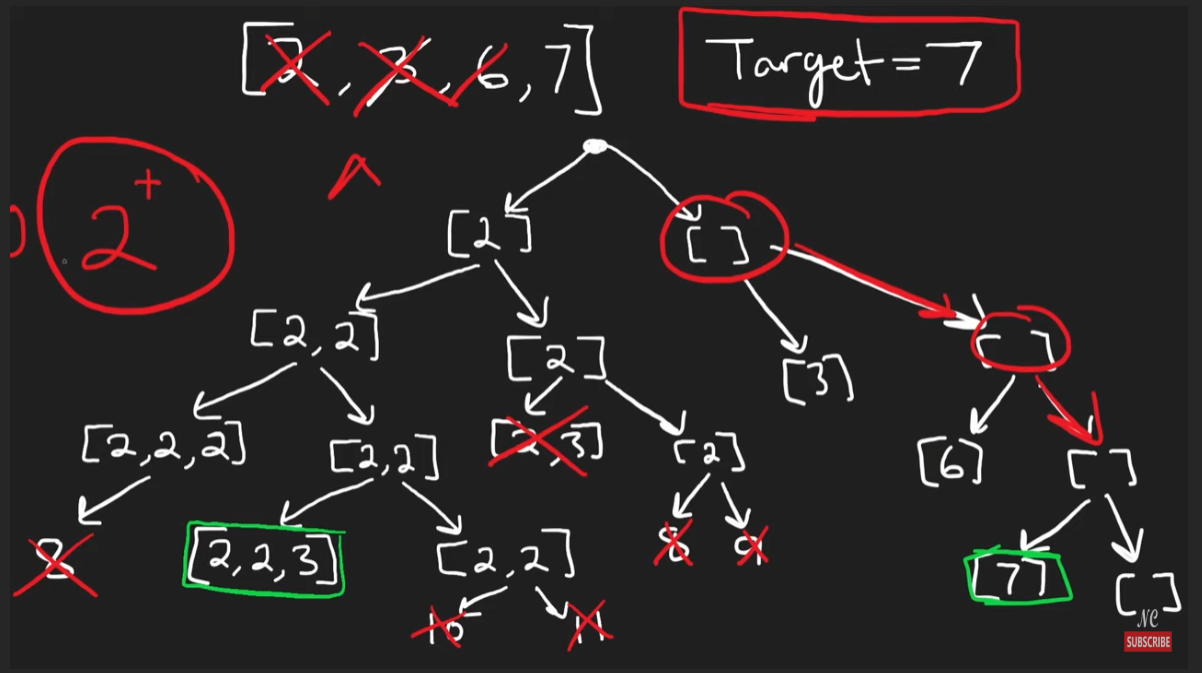 [2, 3, 6, 7]
Target = 7
2+
[2] [ ]
[2,2] [2] [3] [ ]
[2,2,2] [2,2] [2,3] [2] [6] [ ]
8 [2,2,3] [2,2] 8 9 [7] [ ]
10 11
NC
SUBSCRIBE